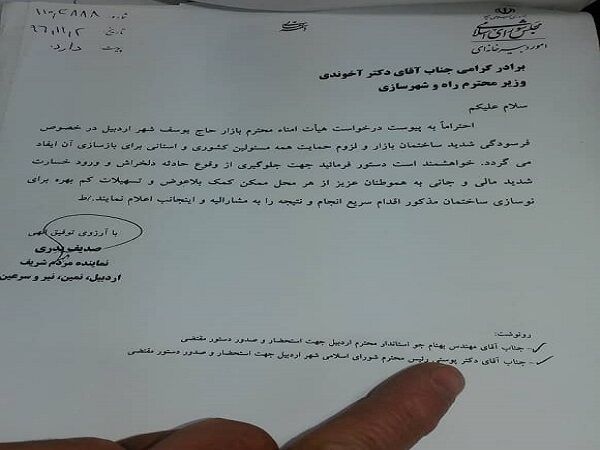 مجلس شورای اسلامی
امور دبیرخانه‌ای
شماره ۱۱۰۴۸۸۸
تاریخ ۹۶,۱۱,۲
پیوست دارد
برادر گرامی جناب آقای دکتر آخوندی
وزیر محترم راه و شهرسازی
سلام علیکم
احتراماً به پیوست درخواست هیأت امناء محترم بازار حاج یوسف شهر اردبیل در خصوص
فرسودگی شدید ساختمان بازار و لزوم حمایت همه مسئولین کشوری و استانی برای بازسازی آن ایفاد
می گردد. خواهشمند است دستور فرمائید جهت جلوگیری از وقوع حادثه دلخراش و ورود خسارت
شدید مالی و جانی به هموطنان عزیز از هر محل ممکن کمک بلاعوض و تسهیلات کم بهره برای
نوسازی ساختمان مذکور اقدام سریع انجام و نتیجه را به مشارالیه و اینجانب اعلام نمایند./ط
با آرزوی توفیق الهی
صدیف بدری
نماینده مردم شریف
اردبیل، نمین، نیر و سرعین
رونوشت:
- جناب آقای مهندس بهنام جو استاندار محترم اردبیل جهت استحضار و صدور دستور مقتضی
- جناب آقای دکتر پوستی رئیس محترم شورای اسلامی شهر اردبیل جهت استحضار و صدور دستور مقتضی